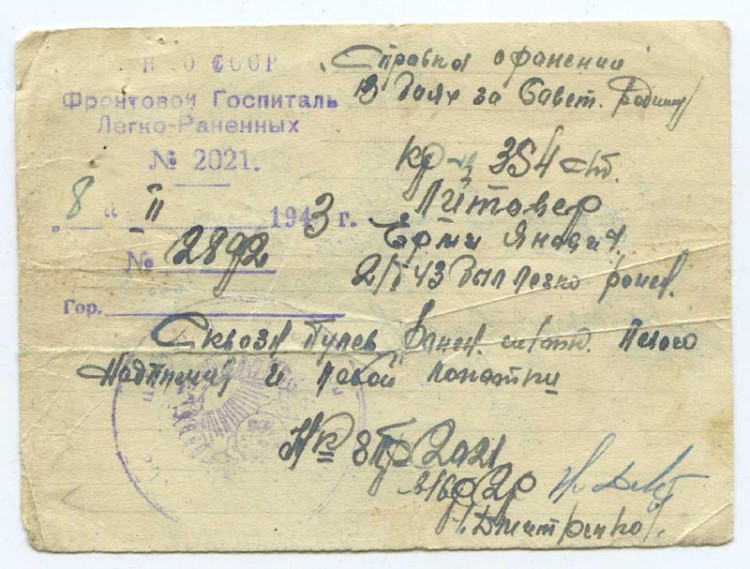 НКО СССР
Фронтовой Госпиталь
Легко-Раненных
№ 2021.
„8“ II 1943 г.
№ 2892
Гор.
Справка о ранении
В боях за Совет. Родину
Кр-ц 354 сп.
Литовер
Янович.
2/I 43 был легко ранен.
Сквозн. Пулев. ранен. Левого
Надплечия и Левой Лопатки
2021
Дмитренко